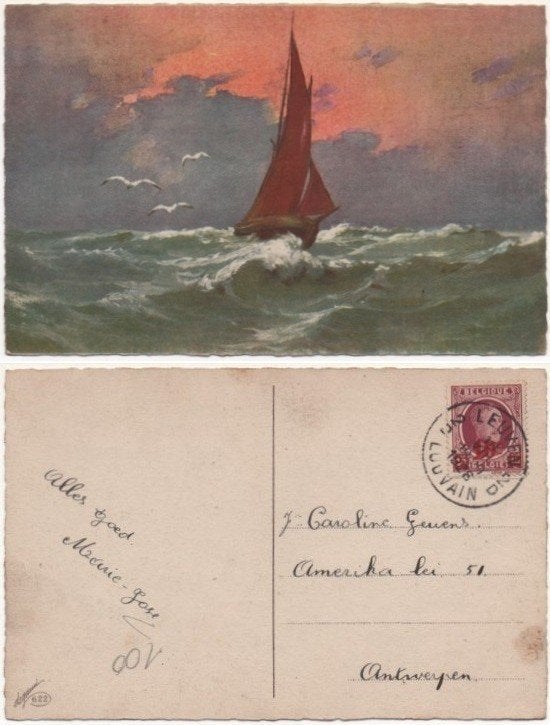 Alles goed.
Marie-José
BELGIQUE
LEUVEN
LOUVAIN
Jr Caroline Geuens.
Amerika lei 51.
Antwerpen.
622